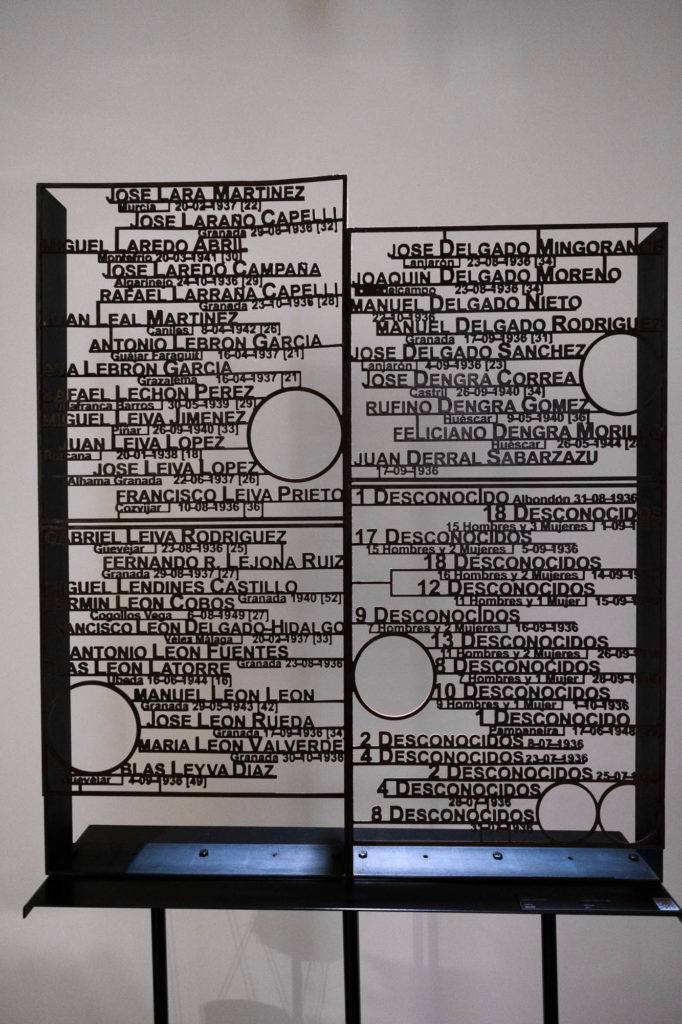 JOSE LARA MARTINEZ
Murcia 20-02-1937 [22]
JOSE LARAÑO CAPELLI
Granada 29-08-1936 [32]
MIGUEL LAREDO ABRIL
Montefrio 20-03-1941 [30]
JOSE LAREDO CAMPAÑA
Algarinejo 24-10-1936 [29]
RAFAEL LARRAÑA CAPELLI
Granada 23-10-1936 [28]
JUAN LEAL MARTINEZ
Caniles 8-04-1942 [26]
ANTONIO LEBRON GARCIA
Guájar Faraguit 16-04-1937 [21]
ANA LEBRON GARCIA
Grazalema 16-04-1937 [21]
RAFAEL LECHON PEREZ
Villafranca Barros 30-05-1939 [29]
MIGUEL LEIVA JIMENEZ
Piñar 26-09-1940 [33]
JUAN LEIVA LOPEZ
20-01-1938 [18]
JOSE LEIVA LOPEZ
Alhama Granada 22-06-1937 [26]
FRANCISCO LEIVA PRIETO
Cozvijar 10-08-1936 [36]
GABRIEL LEIVA RODRIGUEZ
Guevéjar 23-08-1936 [25]
FERNANDO R. LEJONA RUIZ
Granada 29-08-1937 [27]
MIGUEL LENDINES CASTILLO
Granada 1940 [52]
FERMIN LEON COBOS
Cogollos Vega 6-08-1949 [27]
FRANCISCO LEON DELGADO-HIDALGO
Vélez Málaga 20-02-1937 [33]
ANTONIO LEON FUENTES
Granada 23-08-1936
BLAS LEON LATORRE
Ubeda 16-06-1944 [16]
MANUEL LEON LEON
Granada 29-05-1943 [42]
JOSE LEON RUEDA
Granada 17-09-1936 [34]
MARIA LEON VALVERDE
Granada 30-10-1936
BLAS LEYVA DIAZ
Guevéjar 4-09-1936 [49]
JOSE DELGADO MINGORANCE
Lanjarón 23-08-1936 [34]
JOAQUIN DELGADO MORENO
23-08-1936 [34]
MANUEL DELGADO NIETO
22-10-1936
MANUEL DELGADO RODRIGUEZ
Granada 17-09-1936 [31]
JOSE DELGADO SANCHEZ
Lanjarón 4-09-1936 [23]
JOSE DENGRA CORREA
Castril 26-09-1940 [34]
RUFINO DENGRA GOMEZ
Huéscar 9-05-1940 [36]
FELICIANO DENGRA MORILL
Huéscar 26-05-1944
JUAN DERRAL SABARZAZU
17-09-1936
1 DESCONOCIDO Albondón 31-08-1936
18 DESCONOCIDOS
15 Hombres y 3 Mujeres 1-09-1
17 DESCONOCIDOS
15 Hombres y 2 Mujeres 5-09-1936
18 DESCONOCIDOS
16 Hombres y 2 Mujeres 14-09-1
12 DESCONOCIDOS
11 Hombres y 1 Mujer 15-09-1
9 DESCONOCIDOS
7 Hombres y 2 Mujeres 16-09-1936
13 DESCONOCIDOS
11 Hombres y 2 Mujeres 26-09-1
8 DESCONOCIDOS
7 Hombres y 1 Mujer 28-09-1
10 DESCONOCIDOS
9 Hombres y 1 Mujer 1-10-1936
1 DESCONOCIDO
Pampaneira 17-06-1948
2 DESCONOCIDOS 8-07-1936
4 DESCONOCIDOS 23-07-1936
2 DESCONOCIDOS 25-07-1936
4 DESCONOCIDOS
28-07-1936
8 DESCONOCIDOS
31-07-1936